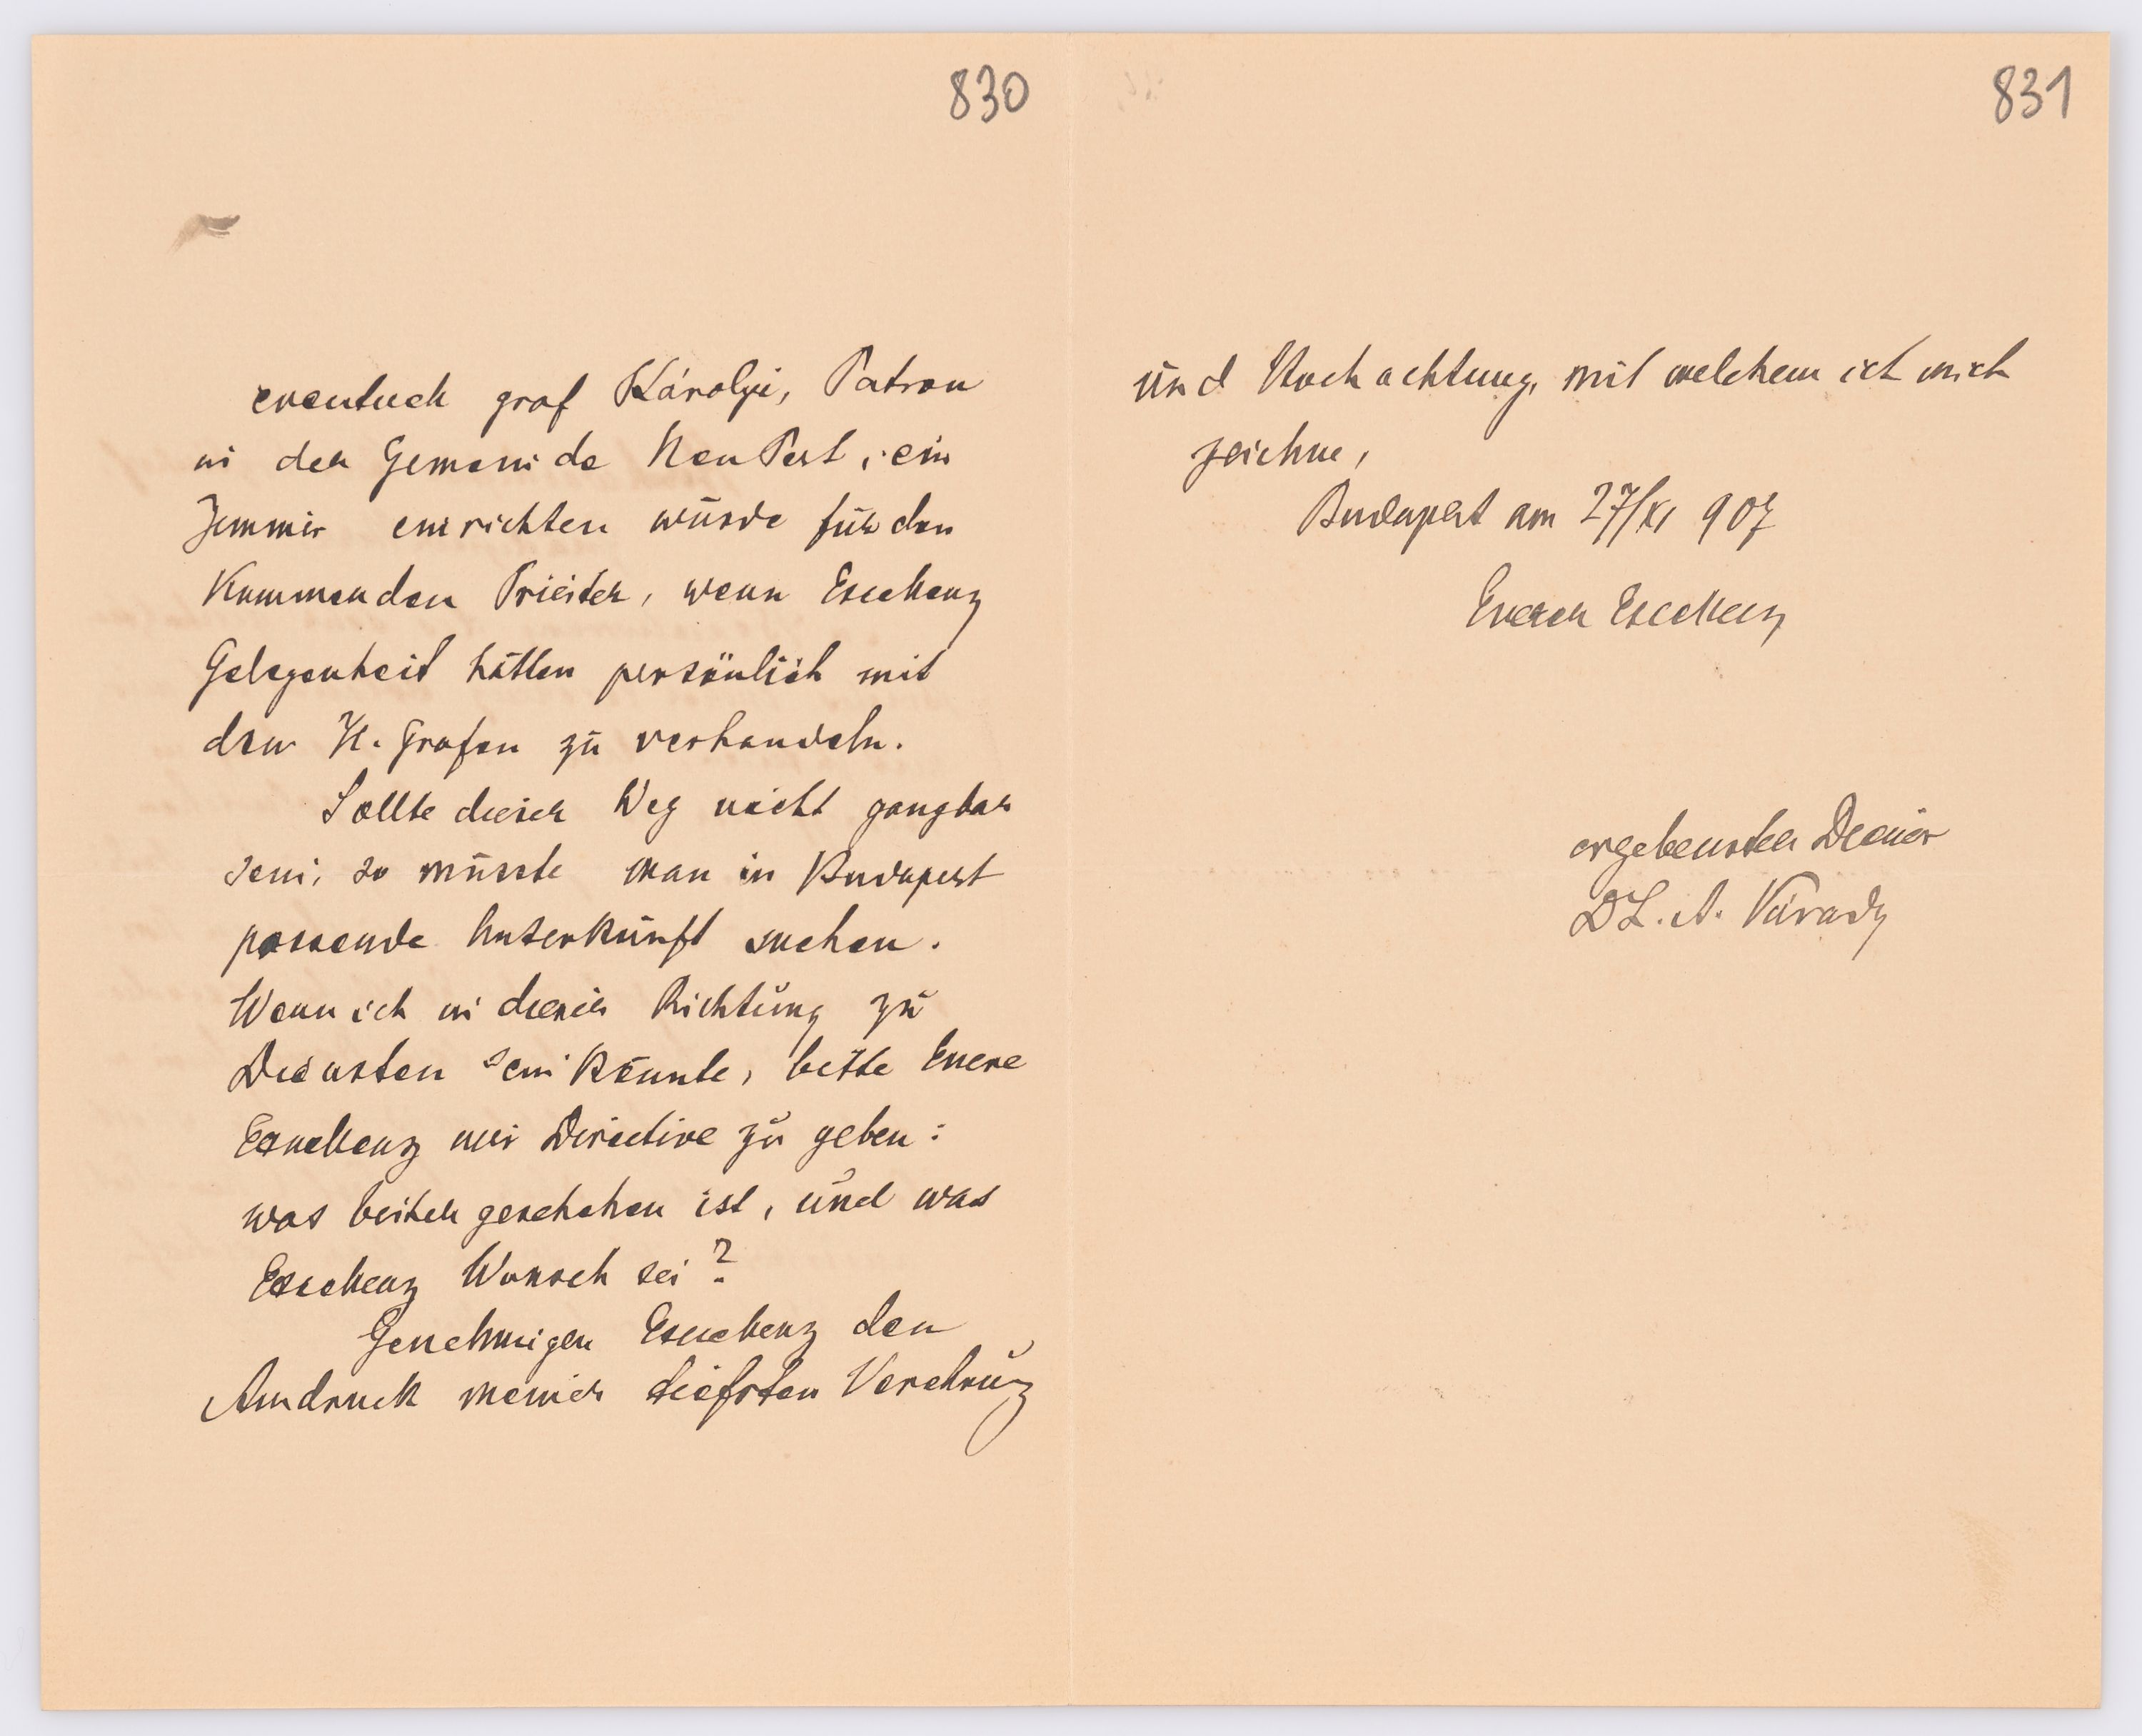 830
eventuell graf Károlyi, Patron
in der Gemeinde NeuPest, ein
Zimmer einrichten würde für den
Kommenden Priester, wenn Excellenz
Gelegenheit hätten persönlich mit
dem H. Grafen zu verhandeln.
Sollte dieser Weg nicht gangbar
sein, so müsste man in Budapest
passende Unterkunft suchen.
Wenn ich in dieser Richtung zu
Diensten sein könnte, bitte Euere
Excellenz mir Directive zu geben:
was bisher geschehen ist, und was
Excellenz Wunsch sei?
Genehmigen Excellenz den
Ausdruck meiner tiefsten Verehrung
831
und Hochachtung, mit welchem ich mich
zeichne,
Budapest am 27/XI 907
Euerer Excellenz
ergebenster Diener
DL. A. Várady